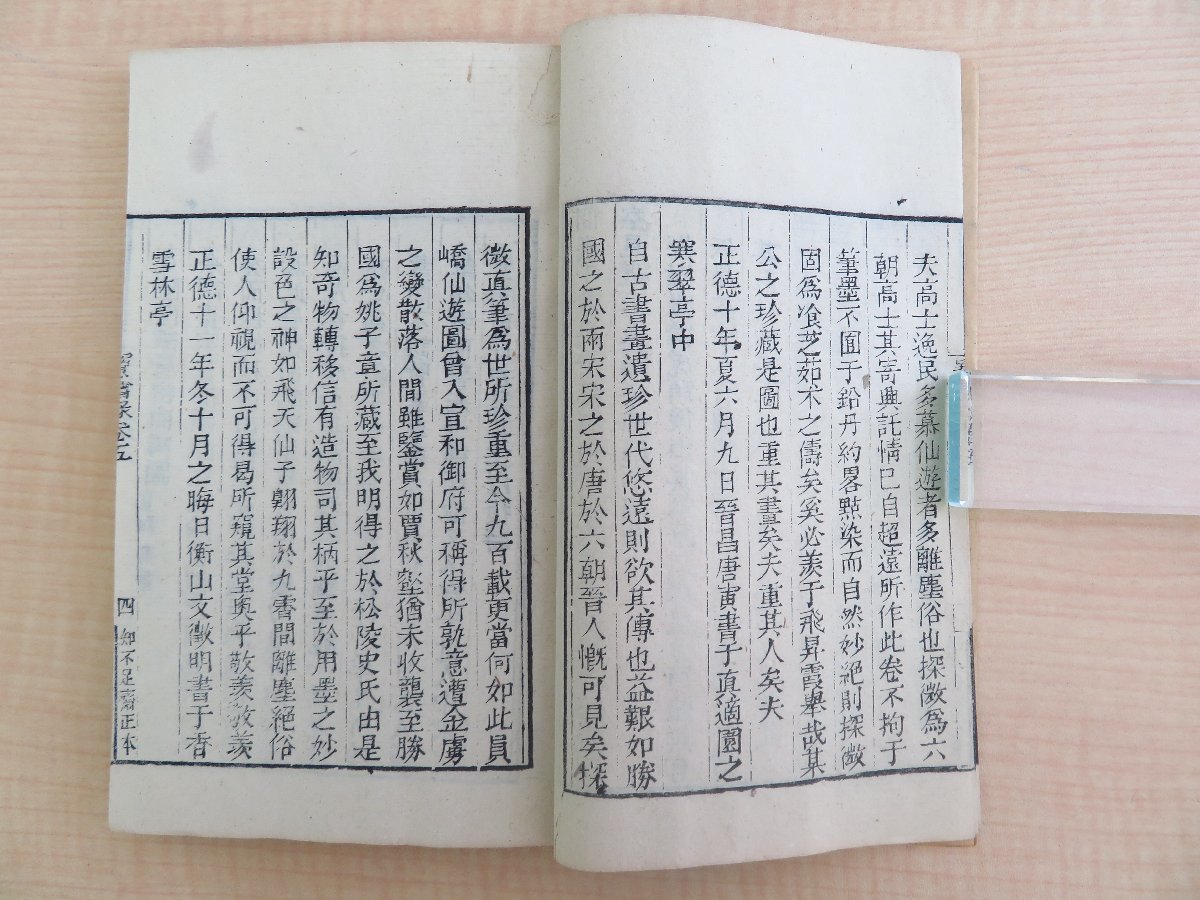 夫高士逸民多慕仙遊者多離塵俗也探微爲六
朝高士其寄興託情已自超遠所作此卷不拘于
筆墨不囿于鉛丹約畧點染而自然妙絕則探微
固爲飡芝茹朮之儔矣奚必羨于飛昇霞舉哉某
公之珍藏是圖也重其畫矣夫重其人矣夫
正德十年夏六月九日晉昌唐寅書于直適園之
寒翠亭中
自古書畫遺珍世代悠遠則欲其傳也益艱如勝
國之於兩宋宋之於唐於六朝晉人慨可見矣探
微真筆爲世所珍重至今九百載更當何如此員
嶠仙遊圖曾入宣和御府可稱得所孰意遭金虜
之變散落人間雖鑒賞如賈秋壑猶未收襲至勝
國爲姚子章所藏至我明得之於松陵史氏由是
知奇物轉移信有造物司其柄乎至於用墨之妙
設色之神如飛天仙子翺翔於九霄間離塵絕俗
使人仰視而不可得曷所窺其堂奧乎敬羨敬羨
正德十一年冬十月之晦日衡山文徵明書于香
雪林亭
寶繪錄卷五
四
知不足齋正本